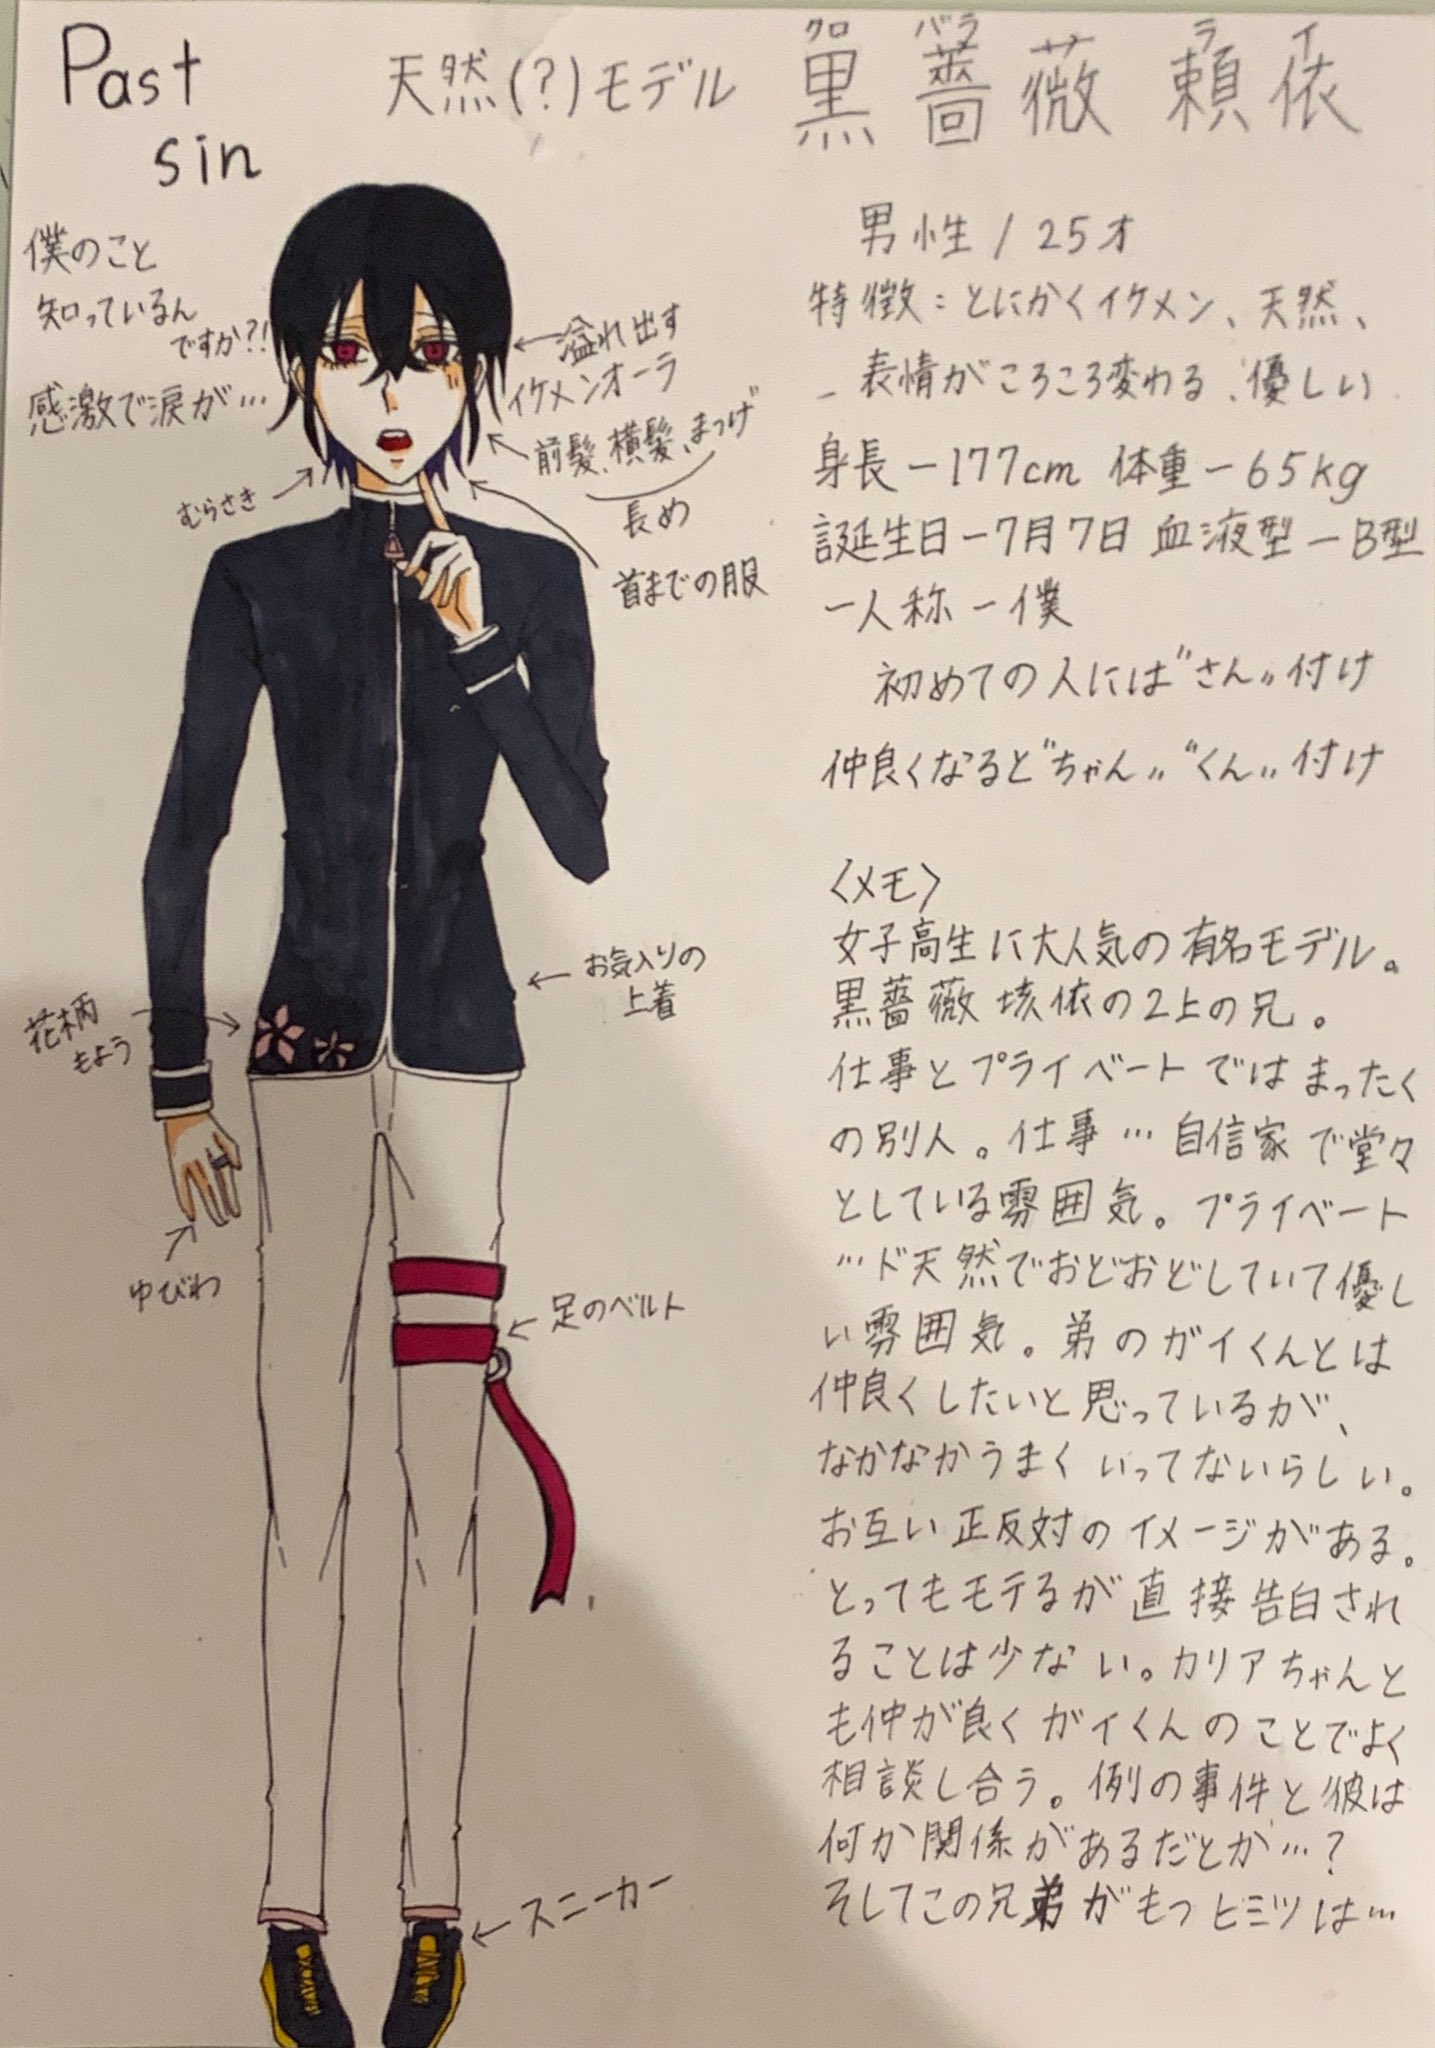 Past
sin
天然(?)モデル
クロ バラ ライ
黒薔薇 頼依
僕のこと
知っているん
ですか?!
感激で涙が…
溢れ出す
イケメンオーラ
前髪、横髪、まつげ
長め
むらさき
首までの服
お気入りの
上着
花柄
もよう
ゆびわ
足のベルト
スニーカー
男性 / 25才
特徴:とにかくイケメン、天然、
表情がころころ変わる、優しい
身長-177cm 体重-65kg
誕生日-7月7日 血液型-B型
一人称-僕
初めての人には"さん"付け
仲良くなると"ちゃん" "くん"付け
〈メモ〉
女子高生に大人気の有名モデル。
黒薔薇 垓依の2上の兄。
仕事とプライベートではまったく
の別人。仕事…自信家で堂々
としている雰囲気。プライベート
…ド天然でおどおどしていて優し
い雰囲気。弟のガイくんとは
仲良くしたいと思っているが、
なかなかうまくいってないらしい。
お互い正反対のイメージがある。
とってもモテるが直接告白され
ることは少ない。カリアちゃんと
も仲が良くガイくんのことでよく
相談し合う。例の事件と彼は
何か関係があるだとか…?
そしてこの兄弟がもつヒミツは…